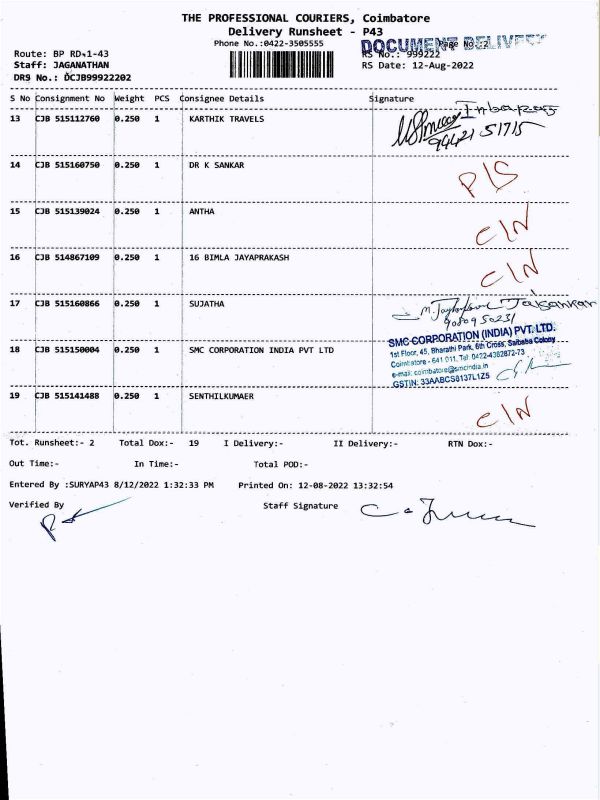 THE PROFESSIONAL COURIERS, Coimbatore
Delivery Runsheet - P43
Phone No.:0422-3505555
DOCUMENT DELIVERY
Page No.:2
Route: BP RD-1-43
RS No.: 999222
Staff: JAGANATHAN
RS Date: 12-Aug-2022
DRS No.: DCJB99922202
S No Consignment No Weight PCS Consignee Details Signature
13 CJB 515112760 0.250 1 KARTHIK TRAVELS
94421 51715
14 CJB 515160750 0.250 1 DR K SANKAR P/S
15 CJB 515139024 0.250 1 ANTHA C/N
16 CJB 514867109 0.250 1 16 BIMLA JAYAPRAKASH C/N
17 CJB 515160866 0.250 1 SUJATHA
SMC CORPORATION (INDIA) PVT. LTD.
18 CJB 515150004 0.250 1 SMC CORPORATION INDIA PVT LTD
1st Floor, 45, Bharathi Park, 6th Cross, Saibaba Colony
Coimbatore - 641 011. Tel: 0422-4382872-73
e-mail: coimbatore@smcindia.in
GSTIN: 33AABCS8137L1Z5
19 CJB 515141488 0.250 1 SENTHILKUMAER C/N
Tot. Runsheet:- 2 Total Dox:- 19 I Delivery:- II Delivery:- RTN Dox:-
Out Time:- In Time:- Total POD:-
Entered By :SURYAP43 8/12/2022 1:32:33 PM Printed On: 12-08-2022 13:32:54
Verified By Staff Signature